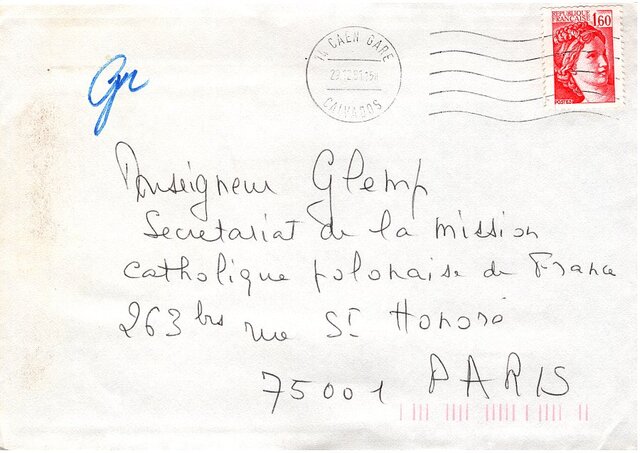 REPUBLIQUE
FRANÇAISE
1,60
POSTES
14 CAEN GARE
CALVADOS
Gr
Monseigneur Glemp
Secretariat de la mission
catholique polonaise de France
263 bis rue St Honoré
75001 PARIS